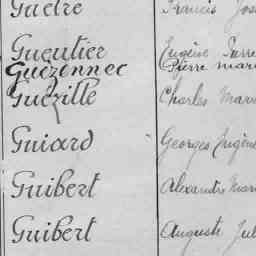 Guetre Francis
Gueutier Eugène Pierre
Guézennec Pierre Marie
Guézille Charles Marie
Guiard Georges Eugène
Guibert Alexandre Marie
Guibert Auguste Jul